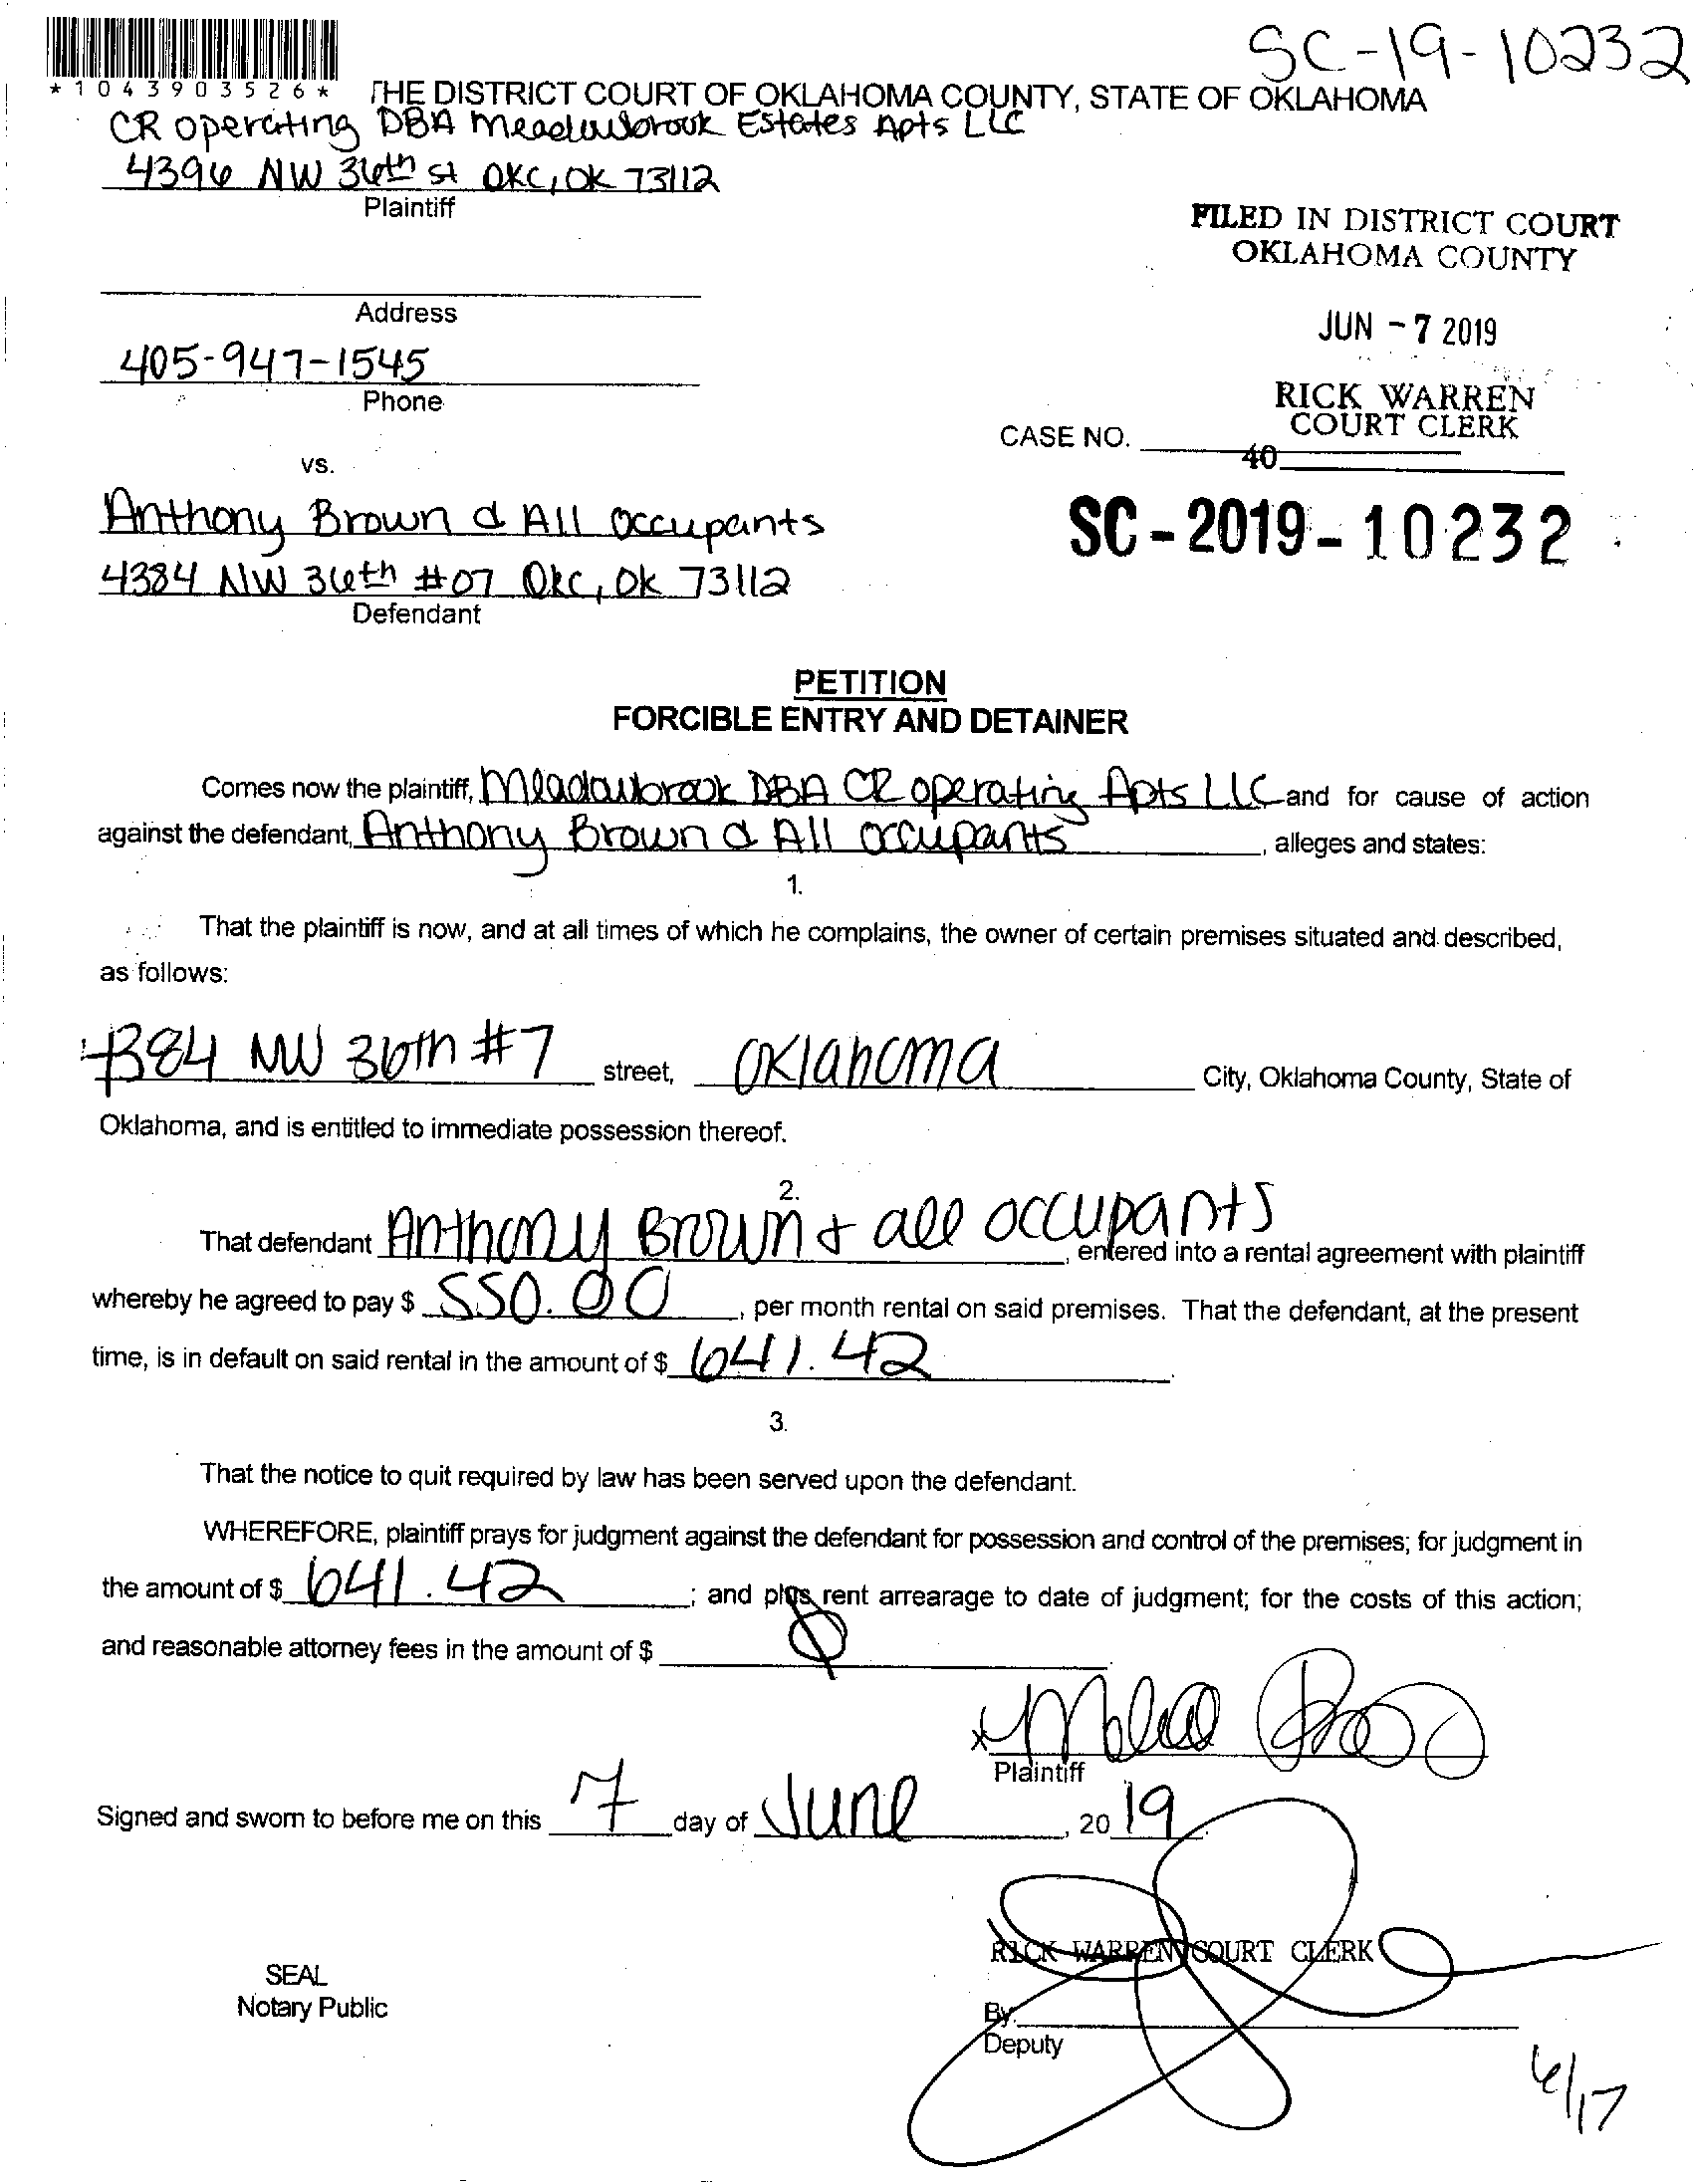 SC-19-10232
*1043903526*
THE DISTRICT COURT OF OKLAHOMA COUNTY, STATE OF OKLAHOMA
CR operating DBA Meadowbrook Estates Apts LLC
4396 NW 36th st OKC, OK 73112
Plaintiff
FILED IN DISTRICT COURT
OKLAHOMA COUNTY
Address
JUN - 7 2019
405-947-1545
Phone
RICK WARREN
COURT CLERK
CASE NO.
40
vs.
Anthony Brown & All occupants
SC - 2019 - 10232
4384 NW 36th #07 OKC, OK 73112
Defendant
PETITION
FORCIBLE ENTRY AND DETAINER
Comes now the plaintiff, Meadowbrook DBA CR operating Apts LLC and for cause of action
against the defendant, Anthony Brown & All occupants, alleges and states:
1.
That the plaintiff is now, and at all times of which he complains, the owner of certain premises situated and described,
as follows:
4384 NW 36th #7 street, Oklahoma City, Oklahoma County, State of
Oklahoma, and is entitled to immediate possession thereof.
2.
That defendant Anthony Brown + all occupants, entered into a rental agreement with plaintiff
whereby he agreed to pay $ 550.00, per month rental on said premises. That the defendant, at the present
time, is in default on said rental in the amount of $ 641.42.
3.
That the notice to quit required by law has been served upon the defendant.
WHEREFORE, plaintiff prays for judgment against the defendant for possession and control of the premises; for judgment in
the amount of $ 641.42; and plus rent arrearage to date of judgment; for the costs of this action;
and reasonable attorney fees in the amount of $ 0
x
Plaintiff
Signed and sworn to before me on this 7 day of June, 2019.
RICK WARREN COURT CLERK
SEAL
Notary Public
By:
Deputy
6/17